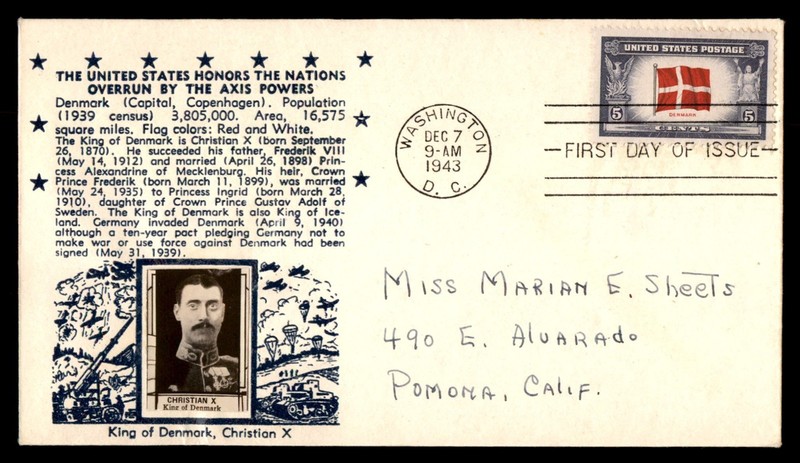 THE UNITED STATES HONORS THE NATIONS
OVERRUN BY THE AXIS POWERS
Denmark (Capital, Copenhagen). Population
(1939 census) 3,805,000. Area, 16,575
square miles. Flag colors: Red and White.
The King of Denmark is Christian X (born September
26, 1870). He succeeded his father, Frederik VIII
(May 14, 1912) and married (April 26, 1898) Prin-
cess Alexandrine of Mecklenburg. His heir, Crown
Prince Frederik (born March 11, 1899), was married
(May 24, 1935) to Princess Ingrid (born March 28,
1910), daughter of Crown Prince Gustav Adolf of
Sweden. The King of Denmark is also King of Ice-
land. Germany invaded Denmark (April 9, 1940)
although a ten-year pact pledging Germany not to
make war or use force against Denmark had been
signed (May 31, 1939).
CHRISTIAN X
King of Denmark
King of Denmark, Christian X
WASHINGTON
DEC 7
9-AM
1943
D. C.
UNITED STATES POSTAGE
DENMARK
5 5
CENTS
FIRST DAY OF ISSUE
Miss Marian E. Sheets
490 E. Alvarado
Pomona, Calif.